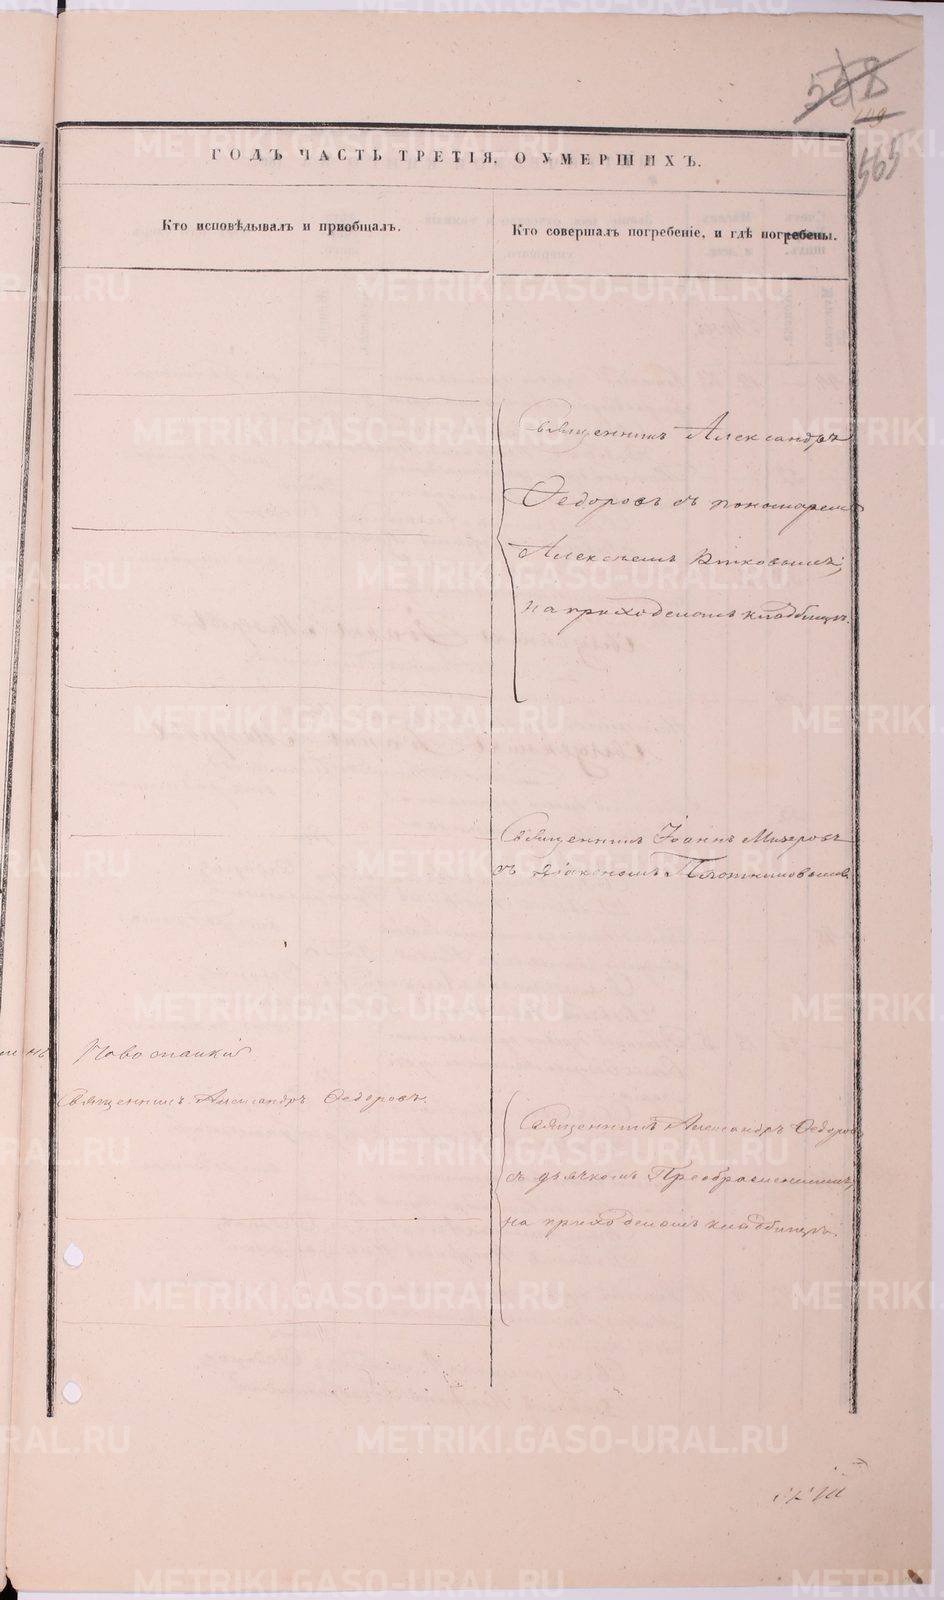 558
565
ГОДЪ ЧАСТЬ ТРЕТІЯ. О УМЕРШИХЪ.
Кто исповѣдывалъ и пріобщалъ.
Кто совершалъ погребеніе, и гдѣ погребены.
Священникъ Александръ
Ѳедоровъ съ пономаремъ
Алексѣемъ
на приходскомъ кладбищѣ.
Священникъ Іоаннъ Мизеровъ
съ діакономъ Плотниковымъ
Священникъ Александръ Ѳедоровъ.
Священникъ Александръ Ѳедоровъ
съ дьячкомъ Преображенскимъ,
на приходскомъ кладбищѣ.
METRIKI.GASO-URAL.RU